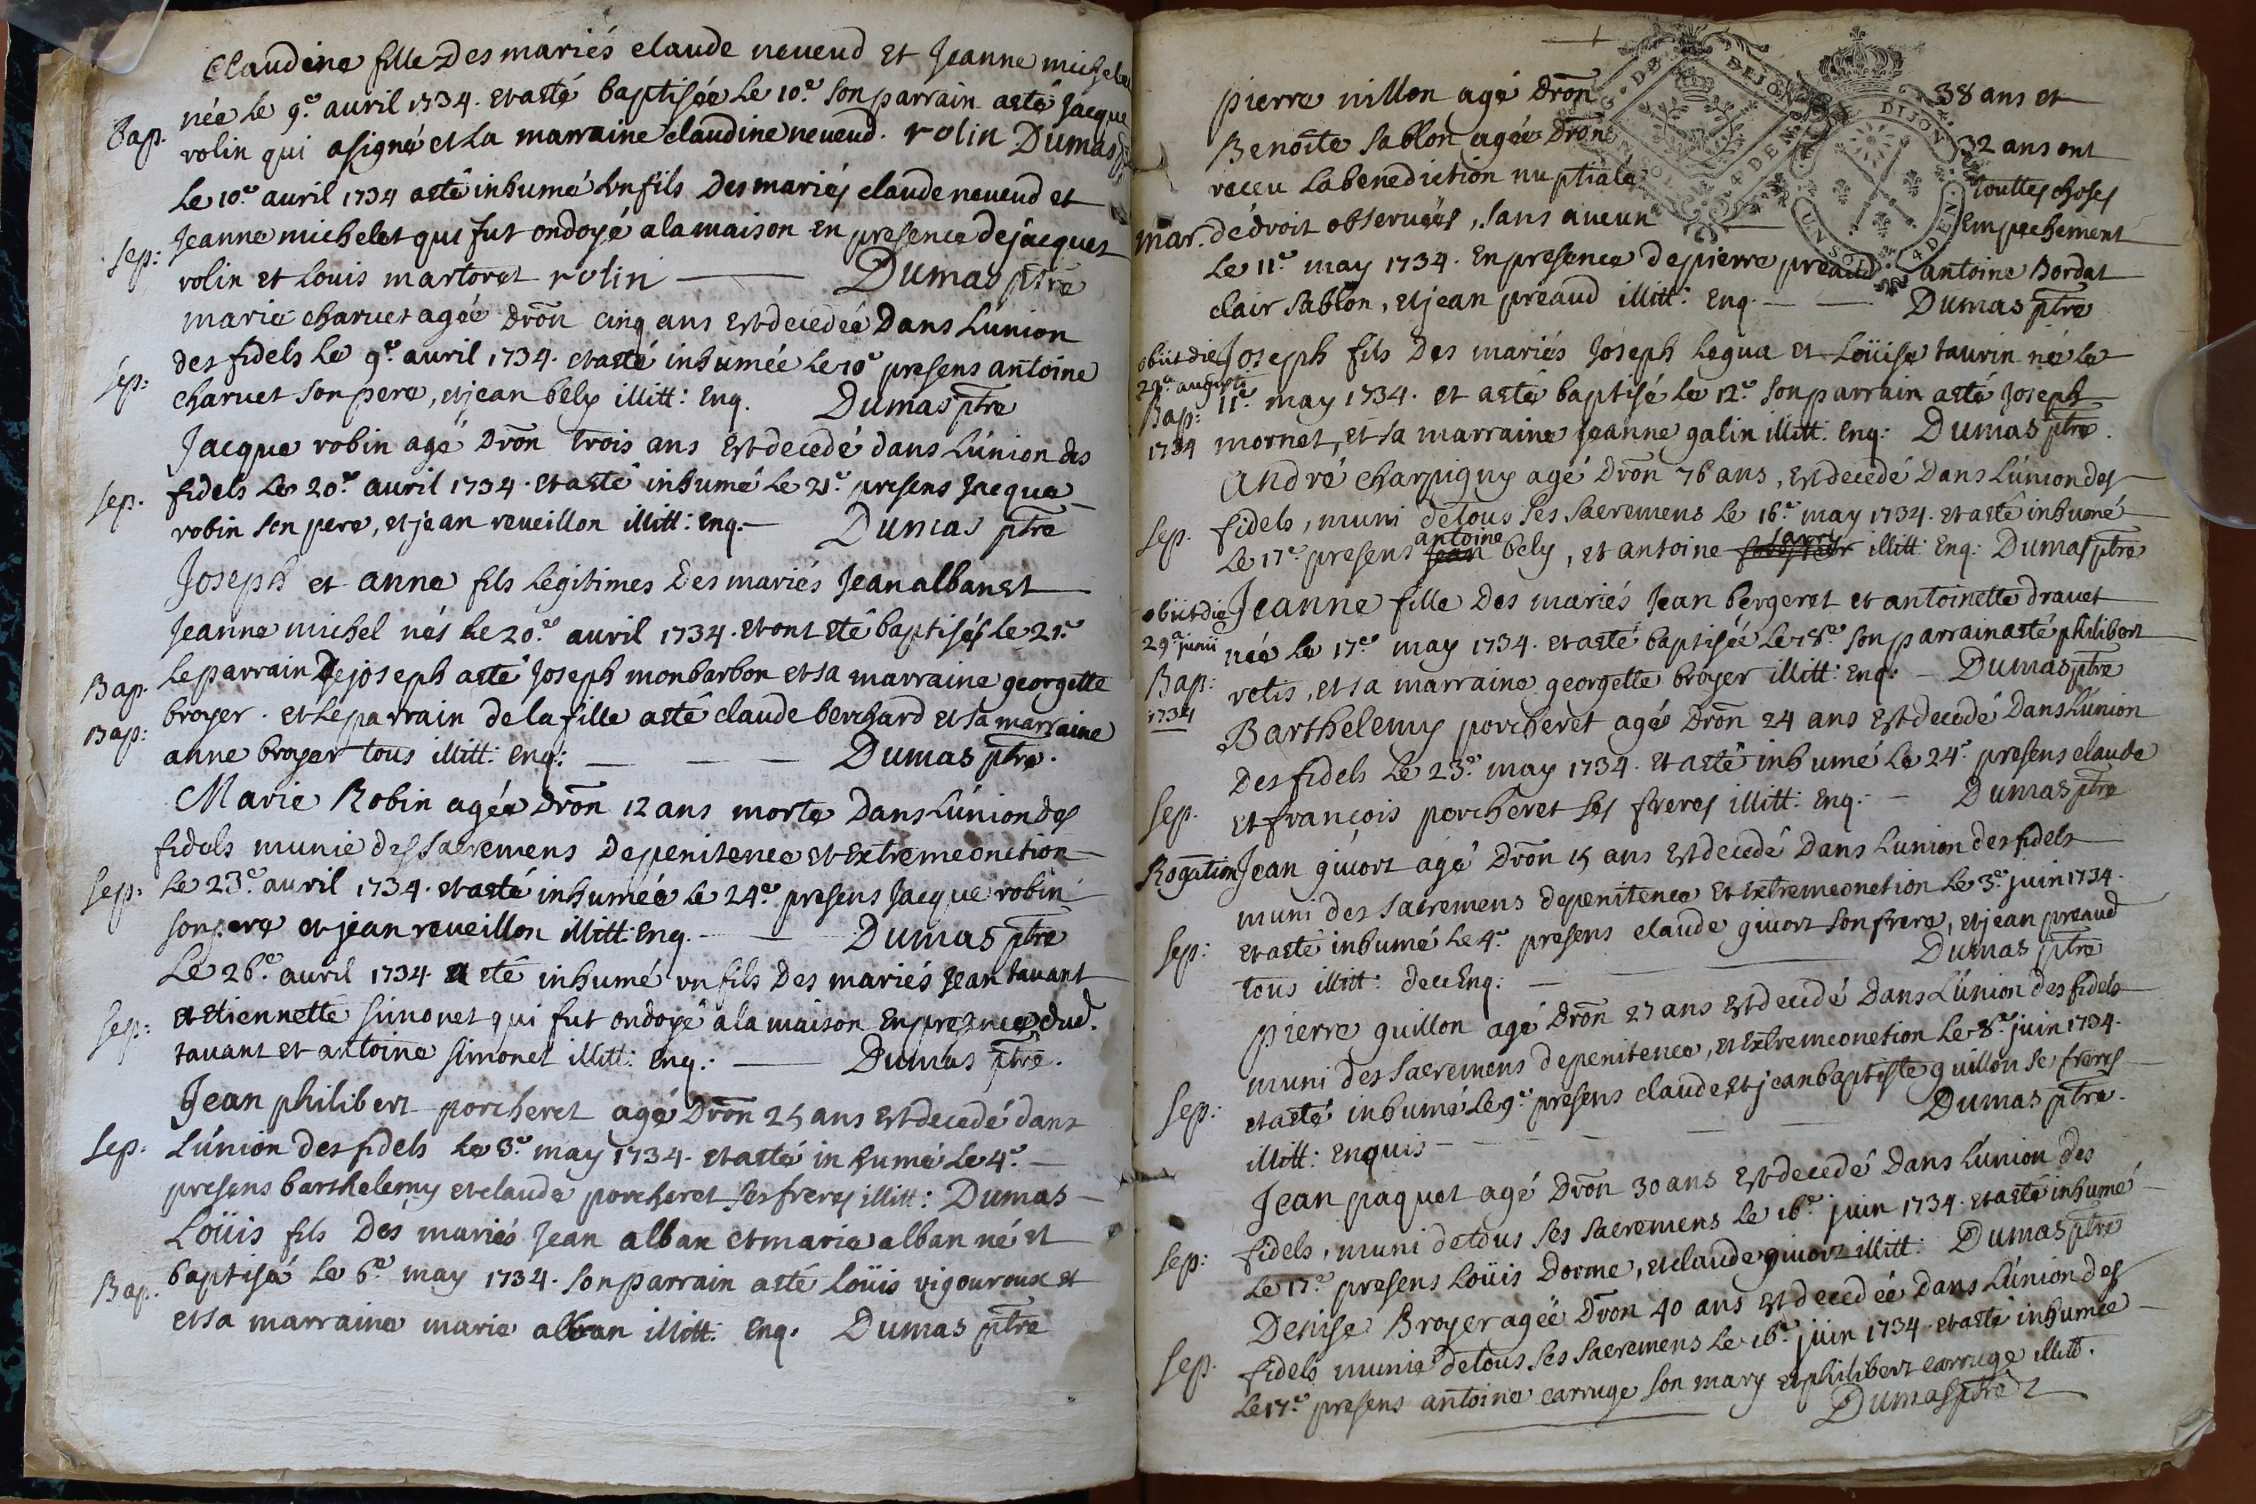 Claudine fille Des mariés claude neveud et Jeanne michelet
Bap. née le 9.e avril 1734. et a eté baptisée le 10.e son parrain a eté Jacque
rolin qui a signé et la marraine claudine neveud. rolin Dumas ptre
Le 10.e avril 1734 a eté inhumé un fils Des mariés claude neveud et
Sep: Jeanne michelet qui fut ondoyé a la maison en presence de jacques
rolin et Louis martoret rolin Dumas ptre
marie charvet agée Dron cinq ans est decedée Dans L'union
sep: des fidels le 9.e avril 1734. et a eté inhumée le 10.e presens antoine
charvet son pere, et jean bely illitt: enq. Dumas ptre
Jacque robin agé Dron trois ans est decedé dans L'union des
sep. fidels le 20.e avril 1734. et a eté inhumé le 21.e presens Jacque
robin son pere, et jean reveillon illitt: enq. Dumas ptre
Joseph et anne fils legitimes Des mariés Jean alban et
Jeanne michel nés le 20.e avril 1734. et ont eté baptisés le 21.e
Bap. le parrain de joseph a eté Joseph monbarbon et sa marraine georgette
Bap: broyer. et le parrain de la fille a eté claude berchard et sa marraine
anne broyer tous illitt: enq: Dumas ptre.
Marie Robin agée Dron 12 ans morte Dans L'union des
fidels munie des sacremens De penitence et Extreme onction
Sep: le 23.e avril 1734. et a eté inhumée le 24.e presens Jacque robin
son pere et jean reveillon illitt: enq. Dumas ptre
Le 26.e avril 1734 a eté inhumé un fils Des mariés Jean tavant
Sep: et Etiennette simonet qui fut ondoyé a la maison en presence dud.
tavant et antoine simonet illitt: enq.: Dumas ptre.
Jean philibert porcheret agé Dron 25 ans est decedé dans
Sep. L'union des fidels le 3.e may 1734. et a eté inhumé le 4.e
presens barthelemy et claude porcheret ses freres illitt: Dumas
Loüis fils Des mariés Jean alban et marie alban né et
Bap. baptisé le 6.e may 1734. son parrain a eté Loüis vigouroux et
et sa marraine marie alban illitt: enq. Dumas ptre
GN. DE DEJON UN SOL 4 DEN
DIJON UN SOL 4 DEN
pierre nillon agé Dron 38 ans et
Benoite sablon agée Dron 32 ans ont
receu la benediction nuptiale touttes choses
mar. de droit observées, sans aucun Empechement
le 11.e may 1734. en presence de pierre preaud antoine Bordat
clair sablon, et jean preaud illitt: enq. Dumas ptre
obiit die Joseph fils Des mariés Joseph legua et Loüise taurin né le
29.a augusti
Bap: 11.e may 1734. et a eté baptisé le 12.e son parrain a eté Joseph
1734 mornet, et sa marraine jeanne galin illitt: enq: Dumas ptre.
André charpigny agé Dron 76 ans, est decedé Dans L'union des
Sep. fidels, muni de tous ses sacremens le 16.e may 1734. et a eté inhumé
antoine
Le 17.e presens jean bely, et antoine illitt: enq: Dumas ptre
obiit die Jeanne fille Des mariés Jean bergeret et antoinette dravet
29.a junii née le 17.e may 1734. et a eté baptisée le 18.e son parrain a eté philibert
Bap: velis, et sa marraine georgette broyer illitt: enq: Dumas ptre
1734
Barthelemy porcheret agé Dron 24 ans est decedé Dans L'union
Des fidels le 23.e may 1734. et a eté inhumé le 24.e presens claude
Sep. et françois porcheret ses freres illitt: enq. Dumas ptre
Rogation Jean givort agé Dron 15 ans est decedé Dans L'union des fidels
muni des sacremens de penitence et Extreme onction le 3.e juin 1734.
Sep: et a eté inhumé le 4.e presens claude givort son frere, et jean preaud
tous illitt: de ce enq: Dumas ptre
pierre guillon agé Dron 27 ans est decedé Dans L'union des fidels
muni des sacremens de penitence, et Extreme onction le 8.e juin 1734.
Sep: et a eté inhumé le 9.e presens claude, et jean baptiste guillon ses freres
illitt: enquis Dumas ptre.
Jean paquet agé Dron 30 ans est decedé Dans L'union des
Sep: fidels, muni de tous ses sacremens le 16.e juin 1734. et a eté inhumé
Le 17.e presens Loüis Dorme, et claude givort illitt: Dumas ptre
Denise Broyer agée Dron 40 ans est decedée Dans L'union des
Sep. fidels munie de tous ses sacremens le 16.e juin 1734. et a eté inhumée
Le 17.e presens antoine carruge son mary et philibert carruge illitt.
Dumas ptre